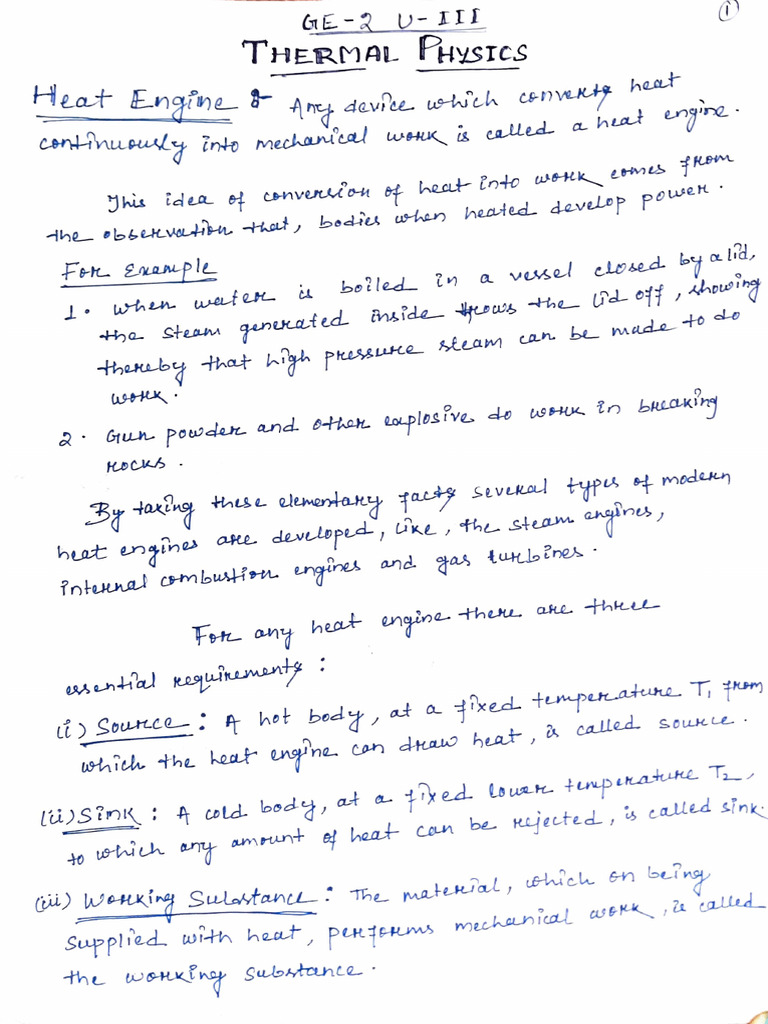 ①
GE-2 U-III
THERMAL PHYSICS
Heat Engine :- Any device which converts heat
continuously into mechanical work is called a heat engine.
This idea of conversion of heat into work comes from
the observation that, bodies when heated develop power.
For Example
1. When water is boiled in a vessel closed by a lid,
the steam generated inside trows the lid off, showing
thereby that high pressure steam can be made to do
work.
2. Gun powder and other explosive do work in breaking
rocks.
By taking these elementary facts several types of modern
heat engines are developed, like, the steam engines,
internal combustion engines and gas turbines.
For any heat engine there are three
essential requirements :
(i) Source : A hot body, at a fixed temperature T₁ from
which the heat engine can draw heat, is called source.
(ii) Sink : A cold body, at a fixed lower temperature T₂,
to which any amount of heat can be rejected, is called sink.
(iii) Working Substance : The material, which on being
supplied with heat, performs mechanical work, is called
the working substance.